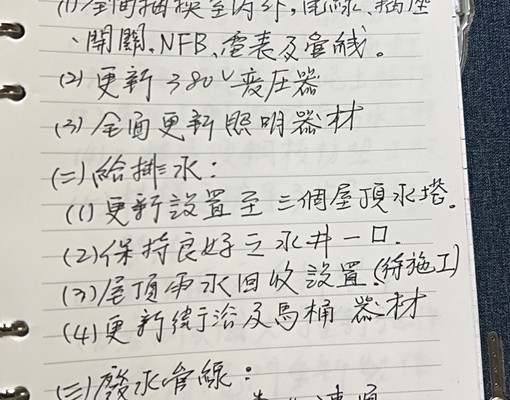 (1)全面抽換室內外,電線、插座
、開關、NFB、電表及管線。
(2)更新380V變压器
(3)全面更新照明器材
(二)給排水:
(1)更新設置至三個屋頂水塔。
(2)保持良好之水井一口.
(3)屋頂雨水回收設置.(待施工)
(4)更新衛浴及馬桶器材
(三)廢水管線: